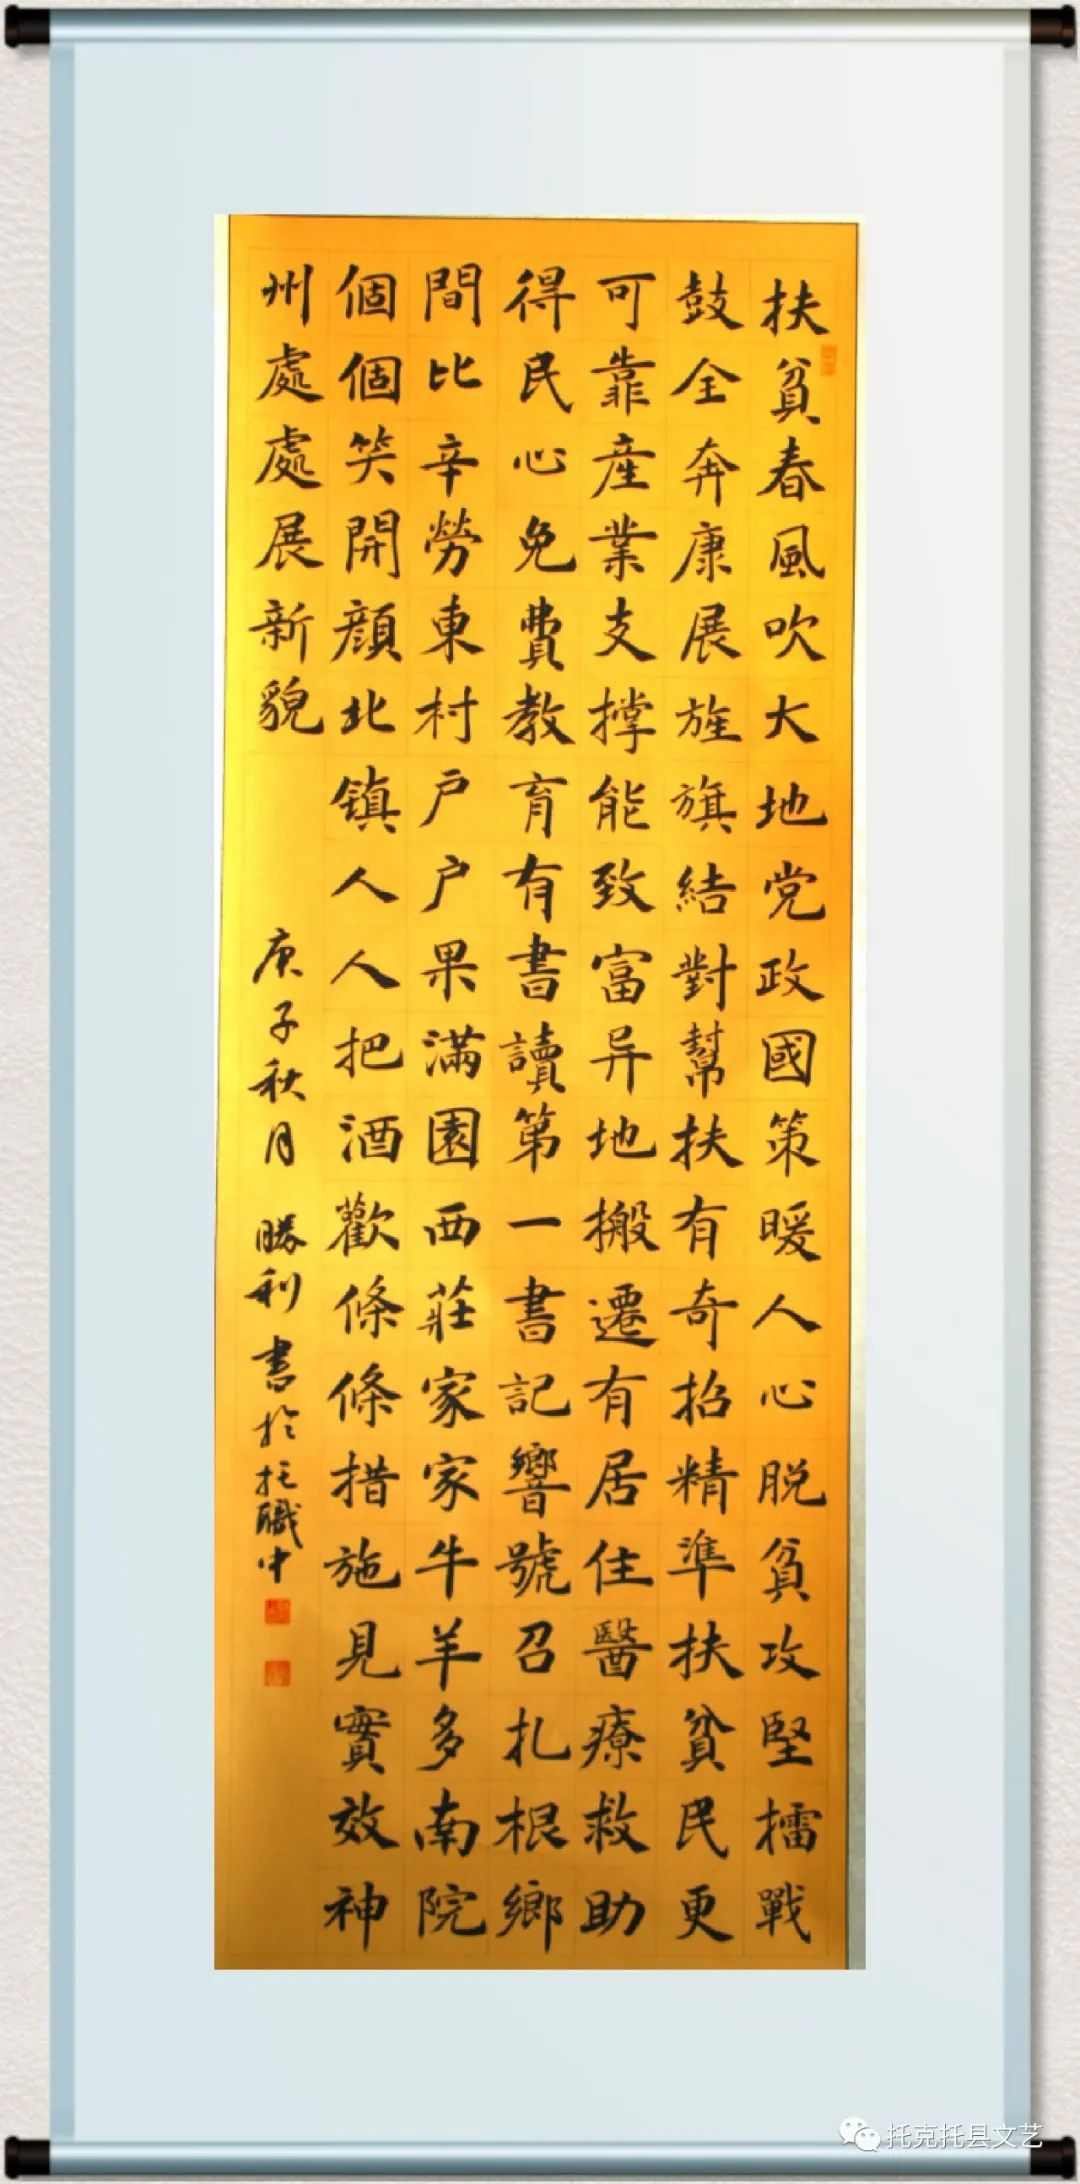 扶貧春風吹大地党政國策暖人心脱貧攻堅擂戰
鼓全奔康展旌旗結對幫扶有奇招精準扶貧民更
可靠産業支撑能致富异地搬遷有居住醫療救助
得民心免費教育有書讀第一書記響號召扎根鄉
間比辛勞東村户户果滿園西莊家家牛羊多南院
個個笑開顔北镇人人把酒歡條條措施見實效神
州處處展新貌
庚子秋月 勝利書於托職中
托克托县文艺